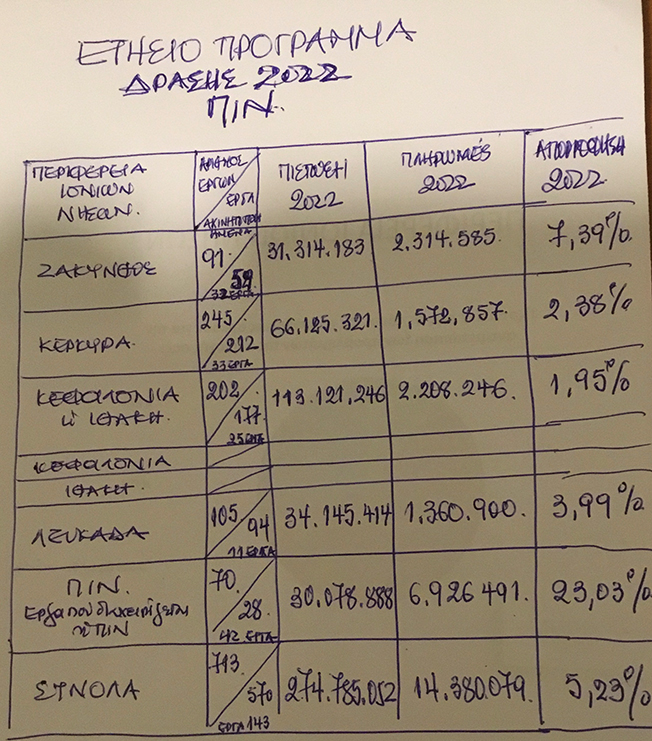 ΕΤΗΣΙΟ ΠΡΟΓΡΑΜΜΑ
ΔΡΑΣΗΣ 2022
ΠΙΝ.
ΠΕΡΙΦΕΡΕΙΑ ΙΟΝΙΩΝ ΝΗΣΩΝ.
ΕΡΓΩΝ ΕΡΓΑ
ΠΙΣΤΩΣΗ 2022
ΠΛΗΡΩΜΕΣ 2022
2022
ΖΑΚΥΝΘΟΣ
91.
59
32 ΕΡΓΑ
31.314.183
2.314.585.
7,39%
ΚΕΡΚΥΡΑ.
245
212
33 ΕΡΓΑ
66.125.321.
1,572,857.
2,38%
ΚΕΦΑΛΟΝΙΑ
ΙΘΑΚΗ.
202
177
25 ΕΡΓΑ
113.121,246
2.208.246.
1,95%
ΚΕΦΑΛΟΝΙΑ
ΙΘΑΚΗ.
ΛΕΥΚΑΔΑ
105
94
11 ΕΡΓΑ
34.145.414
1.360.900.
3,99%
ΠΙΝ.
Εργα που διαχειρίζεται
70
28
42 ΕΡΓΑ
30.078.888
6.926 491.
23,03%
ΣΥΝΟΛΑ
713
570
ΕΡΓΑ 143
274.785.052
14.380.079.
5,23%